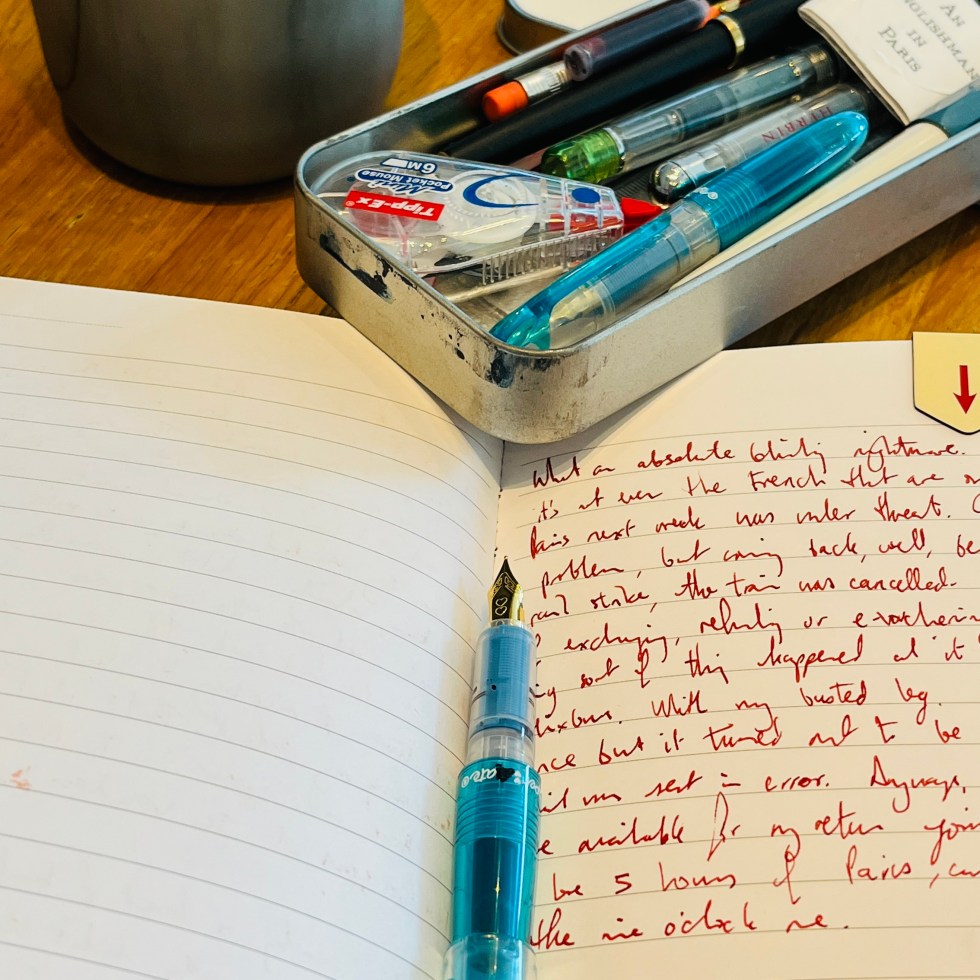 AN
ENGLISHMAN
IN
PARIS
HERBIN
6M
Mini
Pocket Mouse
Tipp-Ex
What an absolute blinding nightmare.
it's not even the French that are
Paris next week was under threat.
problem, but coming back, well, be
rail strike, the train was cancelled.
exchanging, refunding or e-vouchering
sort of thing happened and it
With my busted leg.
but it turned out to be
was sent in error. Anyways,
available for my return
5 hours of Paris,
the nine o'clock one.